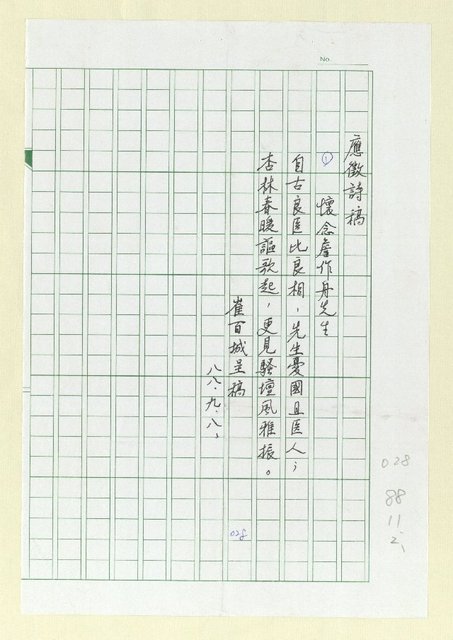 No.
應徵詩稿
① 懷念詹作舟先生
自古良医比良相，先生憂國且医人；
杏林春暖謳歌起，更見騷壇風雅振。
崔百城呈稿
八八、九、八、
028
028
88
11
2、